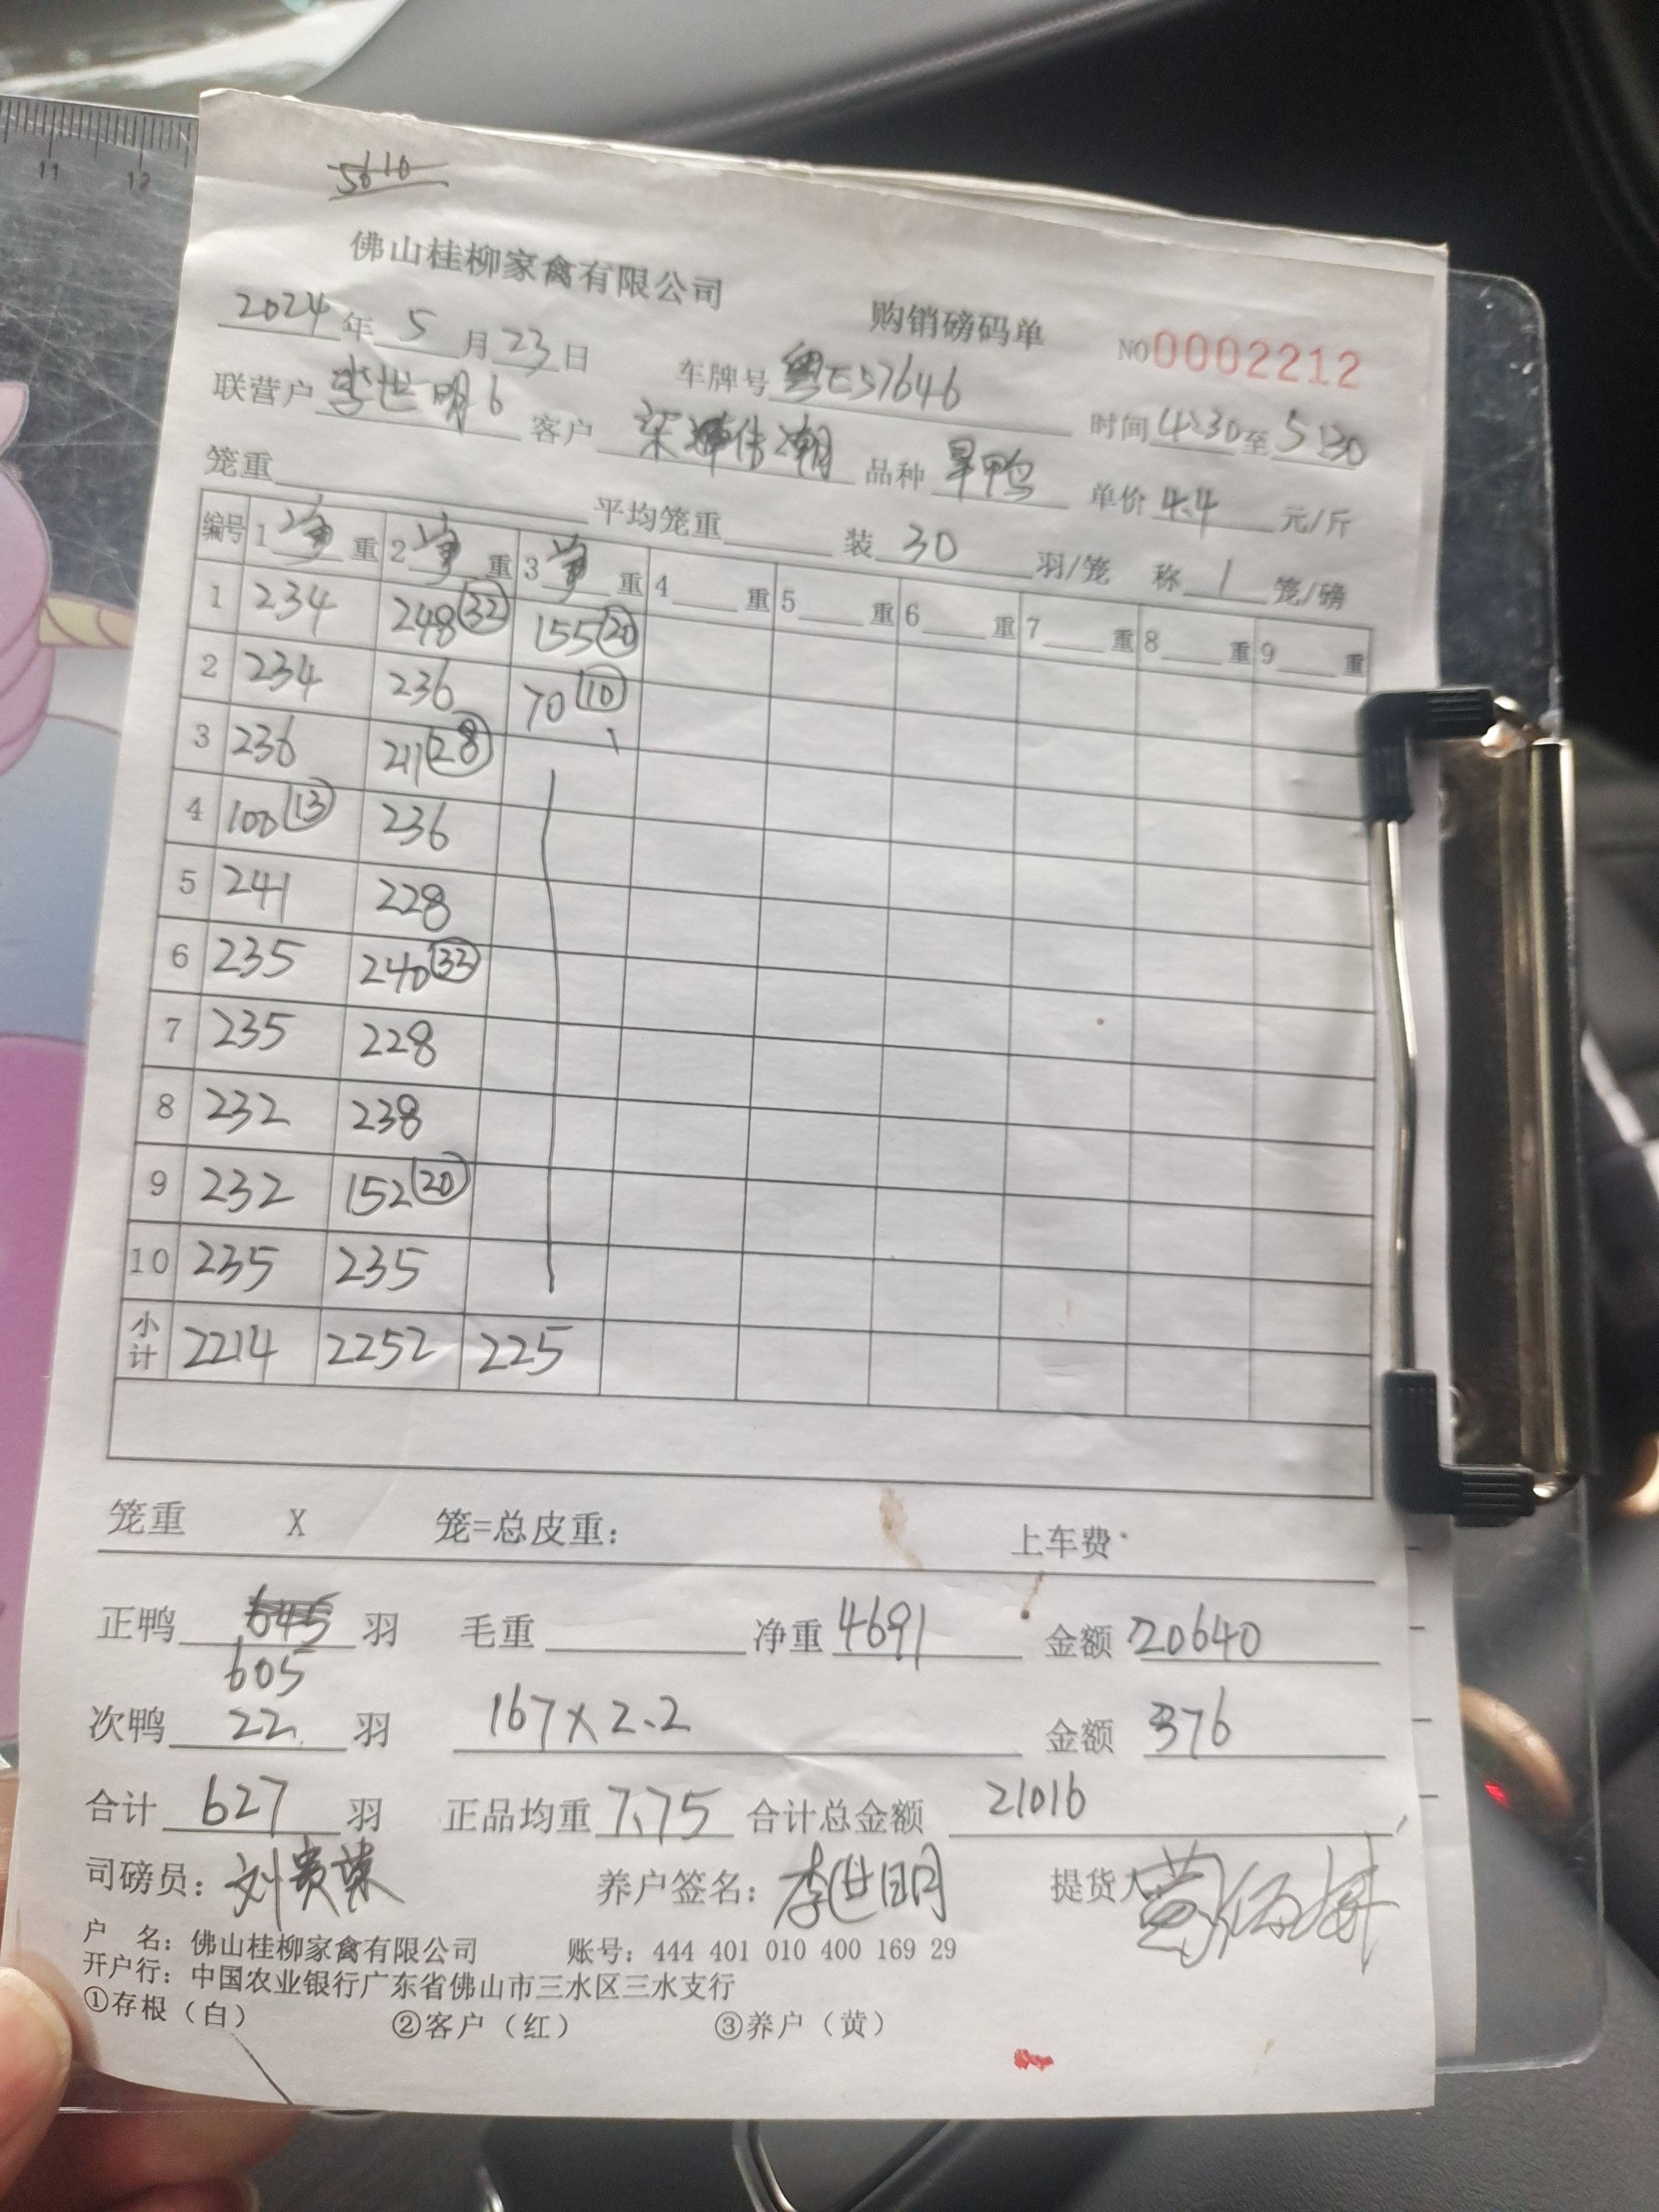 11 12
5610
佛山桂柳家禽有限公司 购销磅码单 NO0002212
2024年5月23日 车牌号 粤E57646 时间 4:30至5:30
联营户 李世明6 客户 品种 旱鸭 单价 4.4 元/斤
笼重 平均笼重 装 30 羽/笼 称 1 笼/磅
编号 1 净 重 2 净 重 3 净 重 4 重 5 重 6 重 7 重 8 重 9 重
1 234 248(32) 155(20)
2 234 236 70(10)
3 236 211(28)
4 100(13) 236
5 241 228
6 235 240(32)
7 235 228
8 232 238
9 232 152(20)
10 235 235
小计 2214 2252 225
笼重 X 笼=总皮重: 上车费
正鸭 645 羽 毛重 净重 4691 金额 20640
605
次鸭 22 羽 167×2.2 金额 376
合计 627 羽 正品均重 7.75 合计总金额 21016
司磅员: 刘贵荣 养户签名: 李世明 提货人:
户 名: 佛山桂柳家禽有限公司 账号: 444 401 010 400 169 29
开户行: 中国农业银行广东省佛山市三水区三水支行
①存根(白) ②客户(红) ③养户(黄)